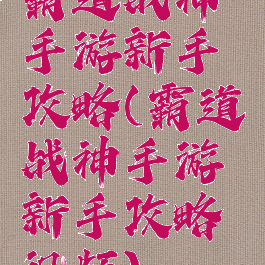 霸道战神
手游新手
攻略(霸道
战神手游
新手攻略
视频)